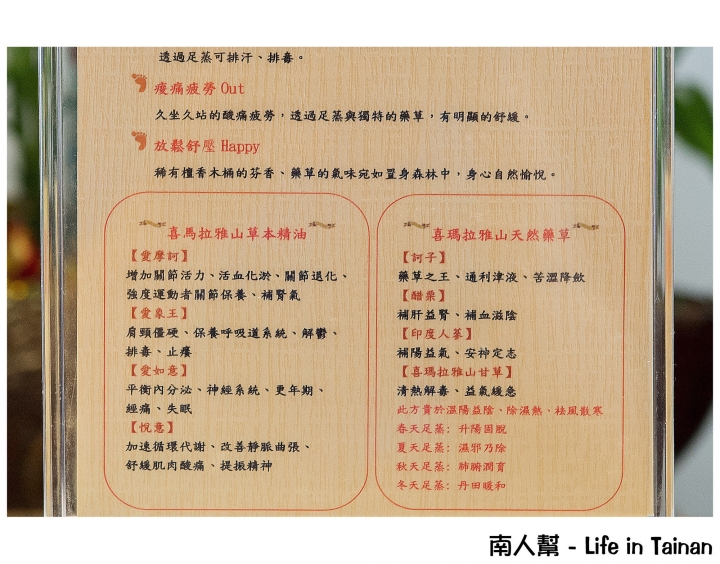 透過足蒸可排汗、排毒。
痠痛疲勞 Out
久坐久站的酸痛疲勞,透過足蒸與獨特的藥草,有明顯的舒緩。
放鬆舒壓 Happy
稀有檀香木桶的芬香、藥草的氣味宛如置身森林中,身心自然愉悅。
喜馬拉雅山草本精油
【愛摩訶】
增加關節活力、活血化淤、關節退化、
強度運動者關節保養、補腎氣
【愛象王】
肩頸僵硬、保養呼吸道系統、解鬱、
排毒、止癢
【愛如意】
平衡內分泌、神經系統、更年期、
經痛、失眠
【悅意】
加速循環代謝、改善靜脈曲張、
舒緩肌肉酸痛、提振精神
喜瑪拉雅山天然藥草
【訶子】
藥草之王、通利津液、苦溫降飲
【醋栗】
補肝益腎、補血滋陰
【印度人蔘】
補陽益氣、安神定志
【喜瑪拉雅山甘草】
清熱解毒、益氣緩急
此方貴於溫陽益陰、除濕熱、袪風散寒
春天足蒸: 升陽固脫
夏天足蒸: 濕邪乃除
秋天足蒸: 肺腑潤育
冬天足蒸: 丹田暖和
南人幫 - Life in Tainan